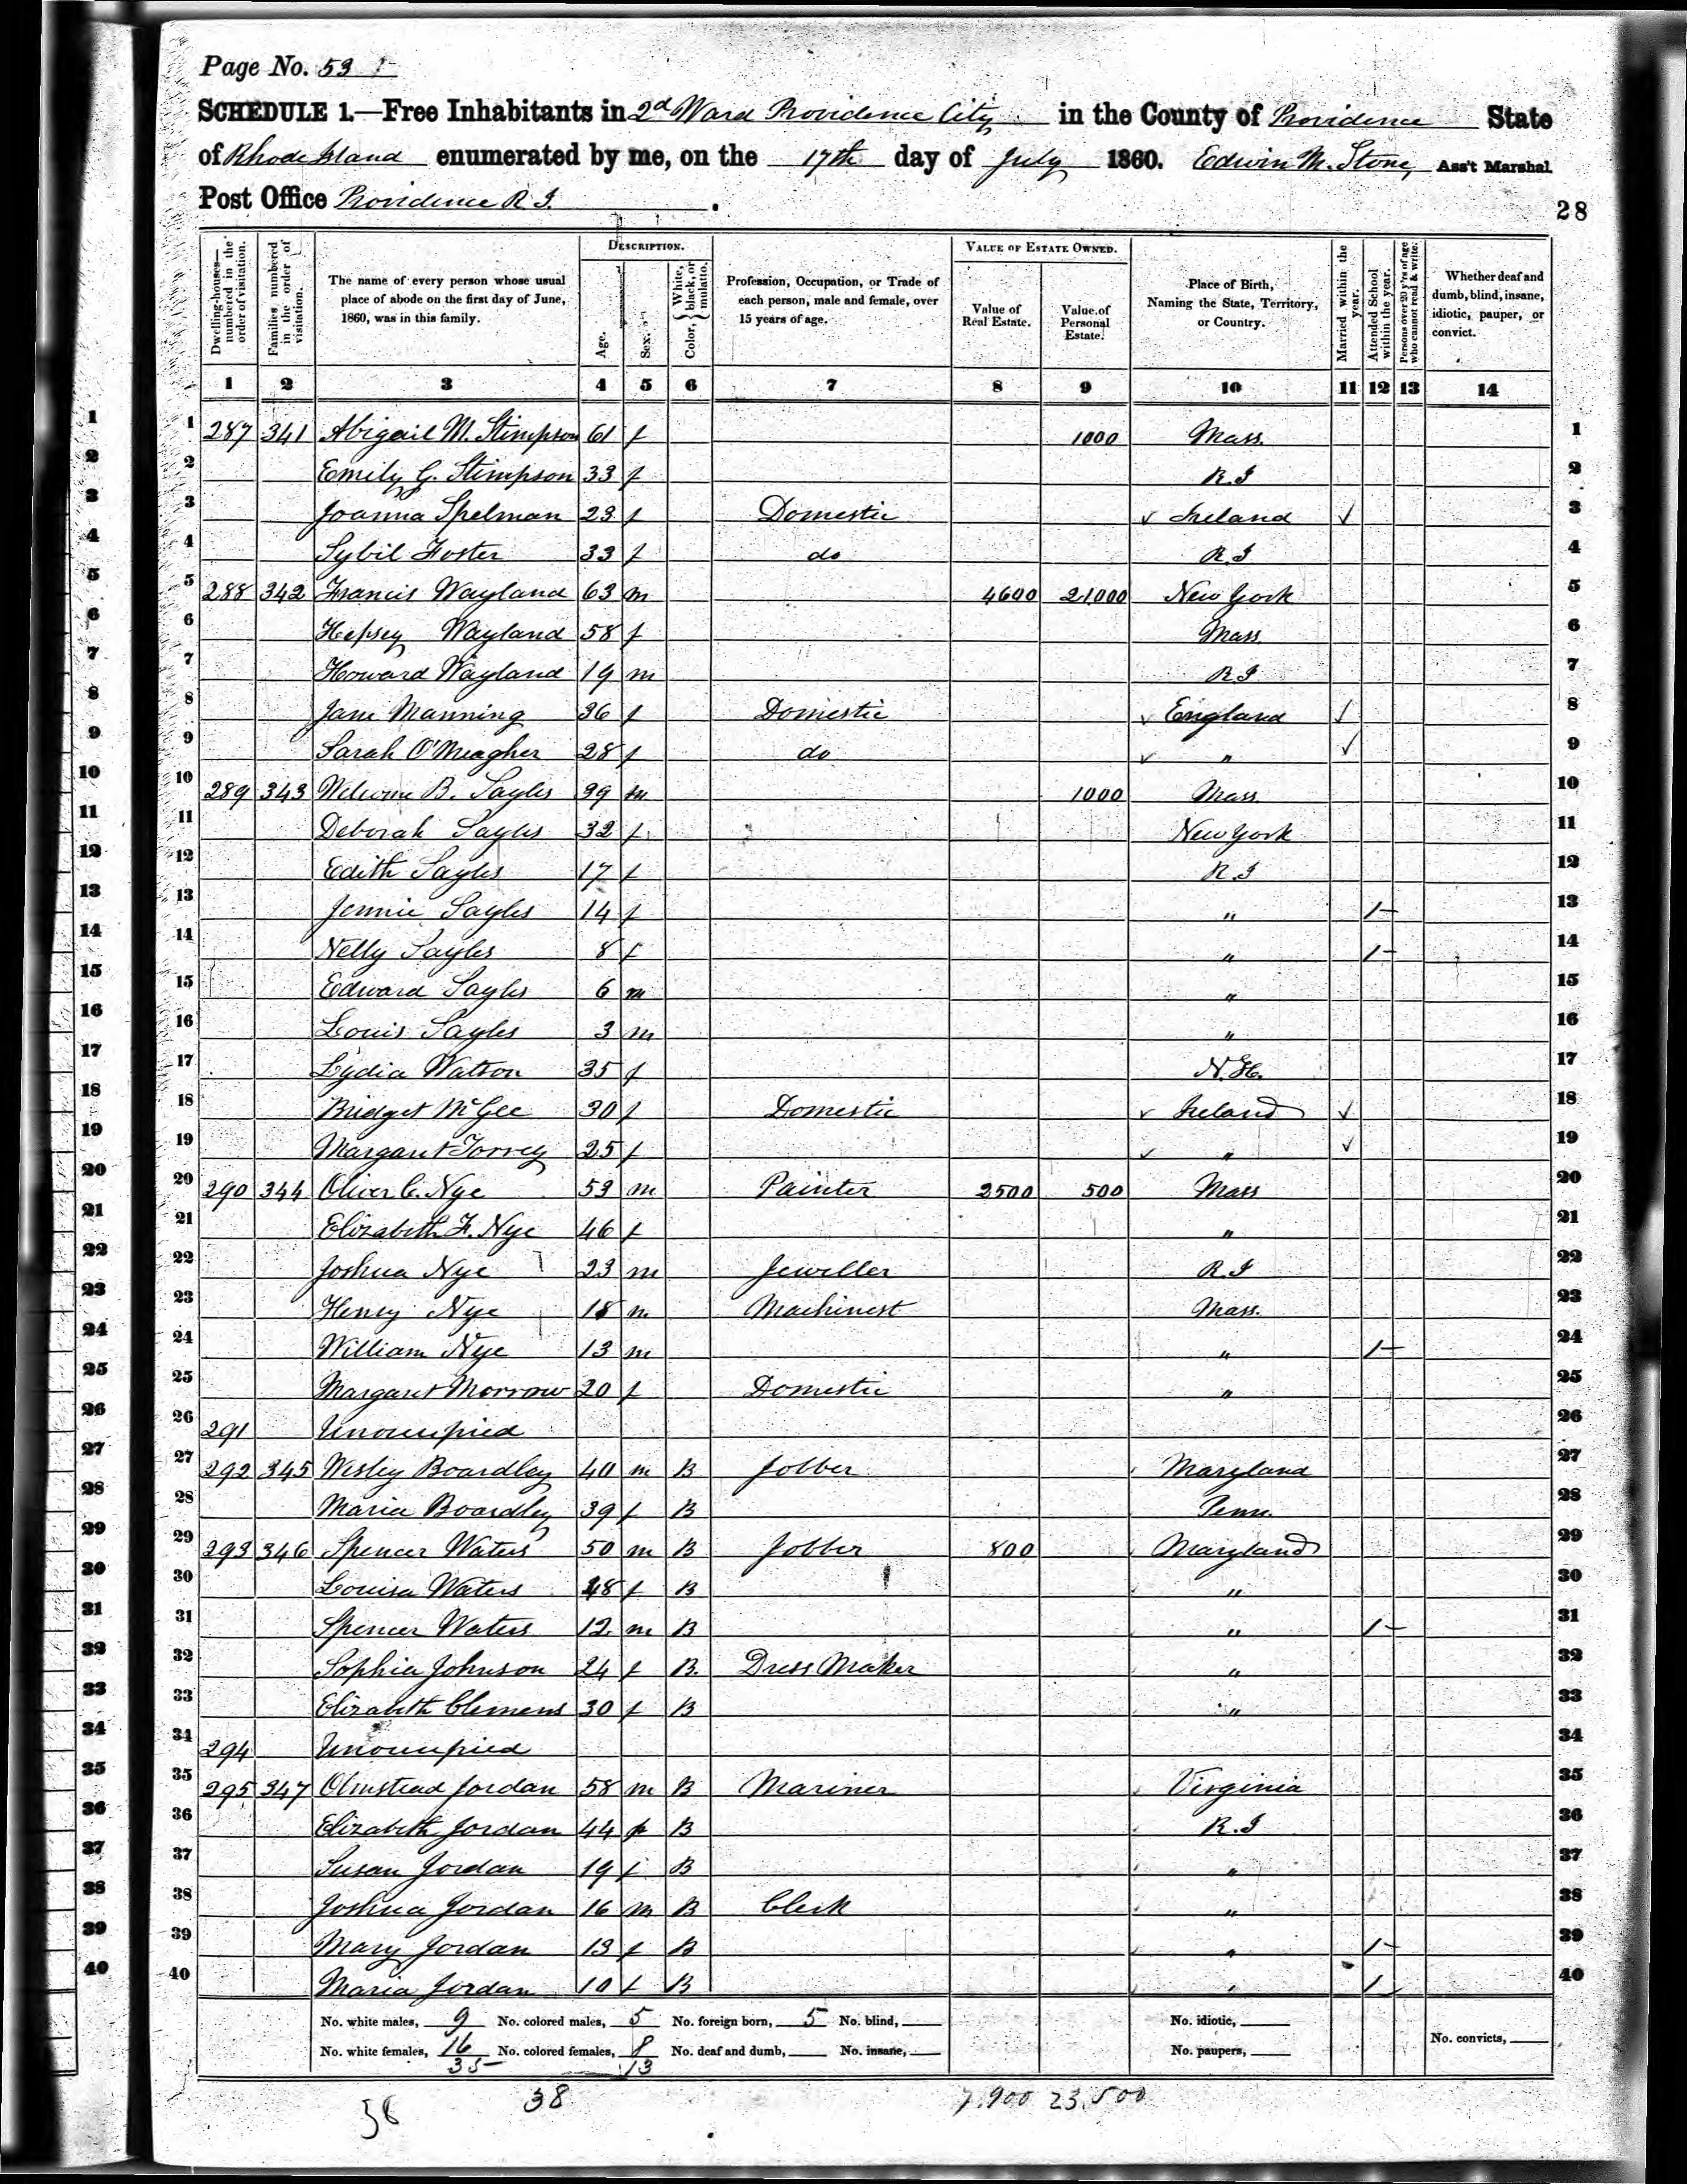 Page No. 53
SCHEDULE 1.—Free Inhabitants in 2d Ward Providence City in the County of Providence State
of Rhode Island enumerated by me, on the 17th day of July 1860. Edwin M. Stone, Ass't Marshal.
Post Office Providence R I.
28
Dwelling-houses—numbered in the order of visitation.
Families numbered in the order of visitation.
The name of every person whose usual place of abode on the first day of June, 1860, was in this family.
DESCRIPTION.
Age.
Sex.
Color, { White, black, or mulatto.
Profession, Occupation, or Trade of each person, male and female, over 15 years of age.
VALUE OF ESTATE OWNED.
Value of Real Estate.
Value of Personal Estate.
Place of Birth, Naming the State, Territory, or Country.
Married within the year.
Attended School within the year.
Persons over 20 y'rs of age who cannot read & write.
Whether deaf and dumb, blind, insane, idiotic, pauper, or convict.
1 2 3 4 5 6 7 8 9 10 11 12 13 14
1 287 341 Abigail M. Stimpson 61 f 1000 Mass. 1
2 Emily G. Stimpson 33 f R.I 2
3 Joanna Spelman 23 f Domestic ✓ Ireland ✓ 3
4 Sybil Foster 33 f do R.I 4
5 288 342 Francis Wayland 63 m 4600 21000 New York 5
6 Hepsey Wayland 58 f Mass. 6
7 Howard Wayland 19 m R.I 7
8 Jane Manning 36 f Domestic ✓ England ✓ 8
9 Sarah O'Meagher 28 f do ✓ " ✓ 9
10 289 343 Welcome B. Sayles 39 m 1000 Mass 10
11 Deborah Sayles 32 f New York 11
12 Edith Sayles 17 f R.I 12
13 Jennie Sayles 14 f " 1 13
14 Nelly Sayles 8 f " 1 14
15 Edward Sayles 6 m " 15
16 Louis Sayles 3 m " 16
17 Lydia Watson 35 f N.H. 17
18 Bridget McGee 30 f Domestic ✓ Ireland ✓ 18
19 Margaret Torrey 25 f ✓ " ✓ 19
20 290 344 Oliver C. Nye 53 m Painter 2500 500 Mass 20
21 Elizabeth F. Nye 46 f " 21
22 Joshua Nye 23 m Jeweller R.I 22
23 Henry Nye 18 m Machinest Mass. 23
24 William Nye 13 m " 1 24
25 Margaret Morrow 20 f Domestic " 25
26 291 Unoccupied 26
27 292 345 Wesley Boardley 40 m B Jobber Maryland 27
28 Maria Boardley 39 f B Penn. 28
29 293 346 Spencer Waters 50 m B Jobber 800 Maryland 29
30 Louisa Waters 48 f B " 30
31 Spencer Waters 12 m B " 1 31
32 Sophia Johnson 24 f B Dress Maker " 32
33 Elizabeth Clemens 30 f B " 33
34 294 Unoccupied 34
35 295 347 Olmstead Jordan 58 m B Mariner Virginia 35
36 Elizabeth Jordan 44 f B R.I 36
37 Susan Jordan 19 f B " 37
38 Joshua Jordan 16 m B Clerk " 38
39 Mary Jordan 13 f B " 1 39
40 Maria Jordan 10 f B " 1 40
No. white males, 9 No. colored males, 5 No. foreign born, 5 No. blind, No. idiotic,
No. white females, 16 No. colored females, 8 No. deaf and dumb, No. insane, No. paupers, No. convicts,
35 13
38 7.900 23.500